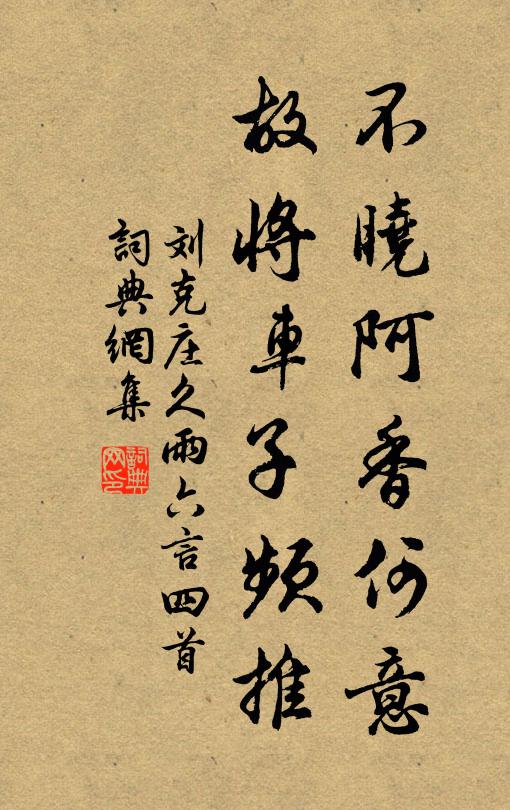 不曉阿香何意
故將車子頻推
刘克庄久雨六言四首
詞典網集
詞典
网印